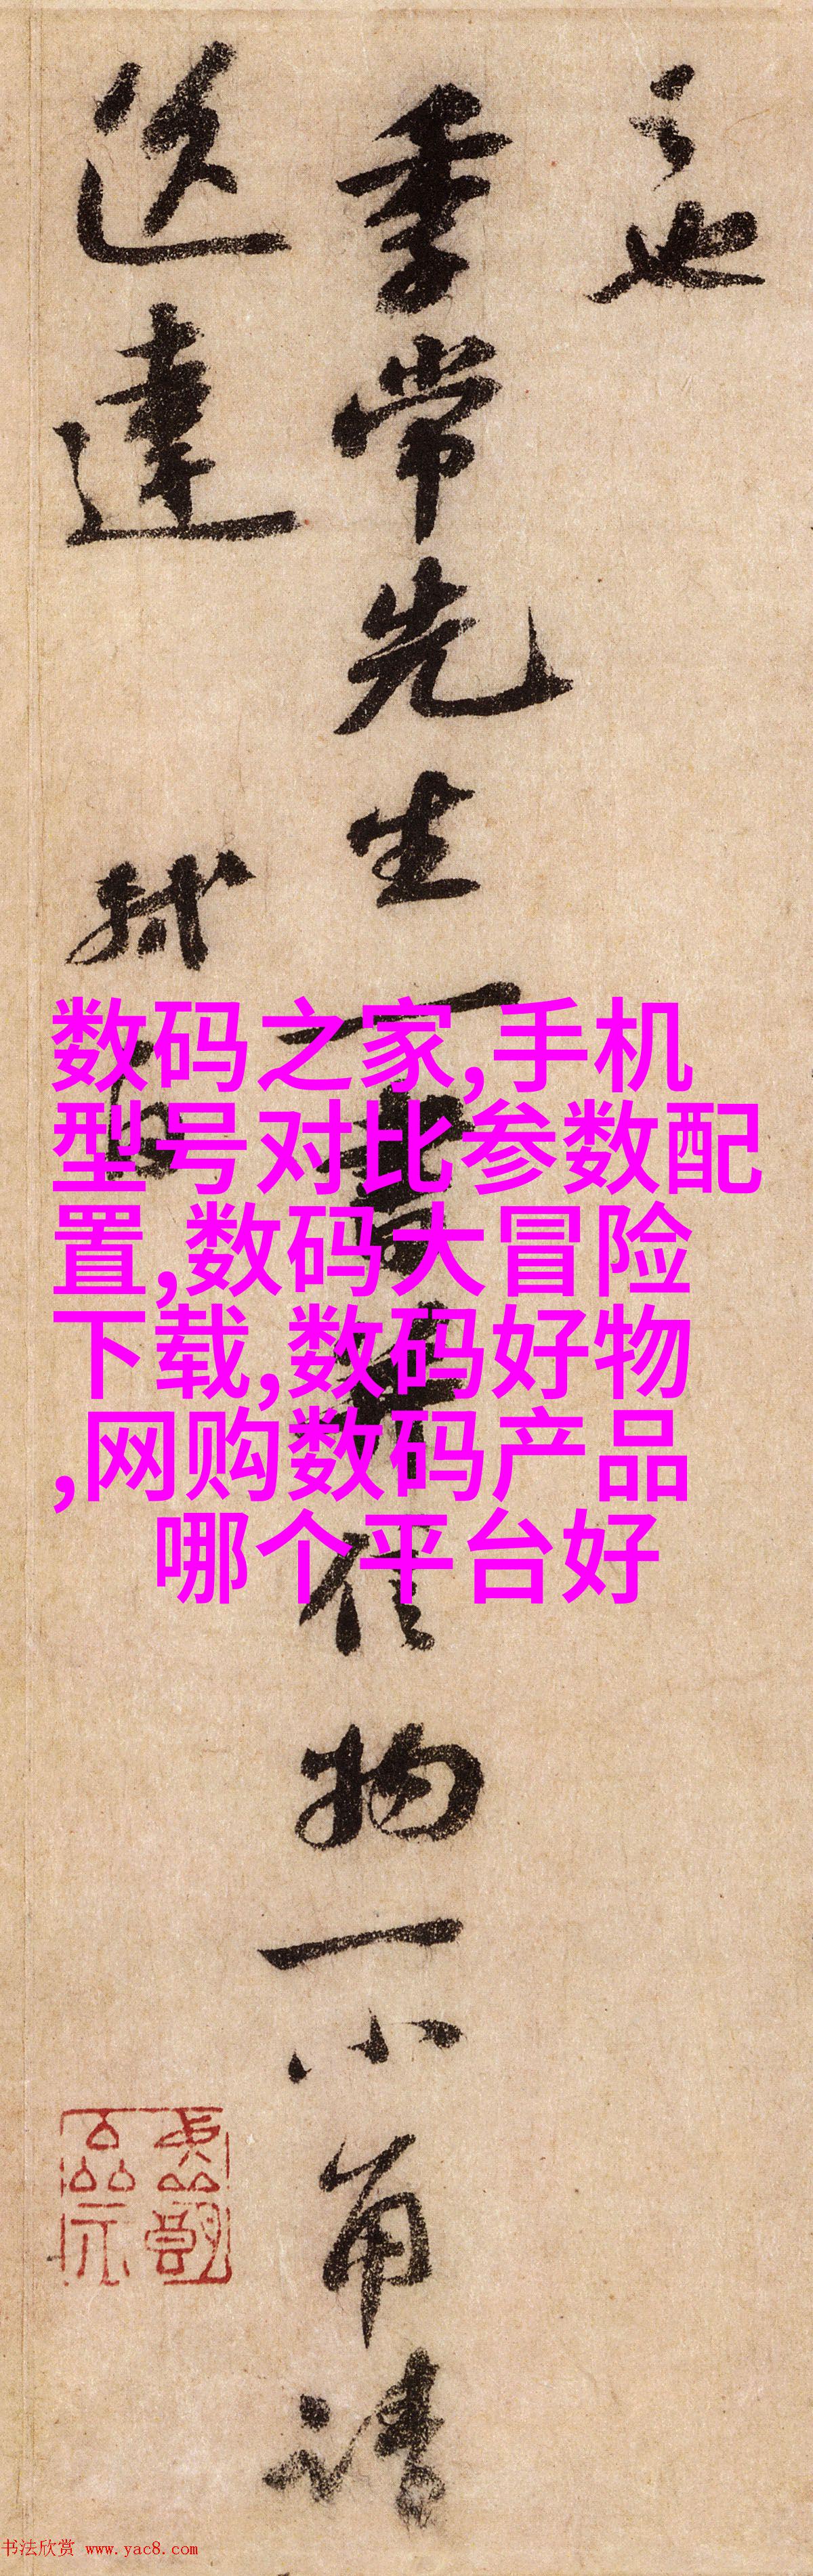 之也
季常先生一書并信物一小角请
送達 軾白
数码之家,手机
型号对比参数配
置,数码大冒险
下载,数码好物
,网购数码产品
哪个平台好
书法欣赏 www.yac8.com